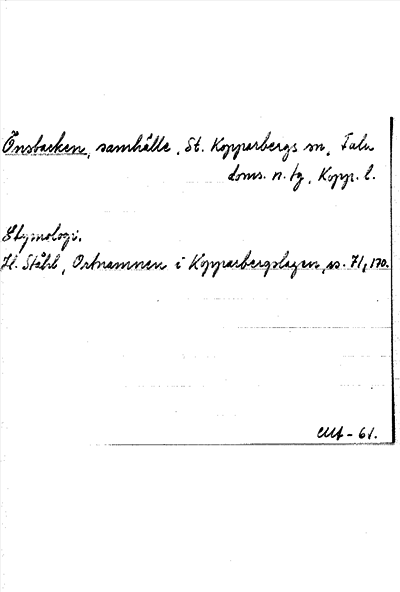 Önsbacken, samhälle, St. Kopparbergs sn, Falu
doms. n. tg, Kopp. l.
Etymologi.
H. Ståhl, Ortnamnen i Kopparbergslagen, ss. 71, 170.
-61.